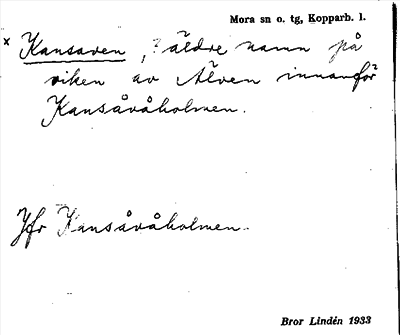 Mora sn o. tg, Kopparb. l.
× Kansaven, ? äldre namn på
viken av Älven innanför
Kansåvåholmen.
Jfr Kansåvåholmen.
Bror Lindén 1933